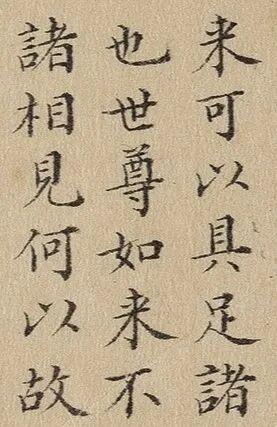 来可以具足諸
也世尊如来不
諸相見何以故